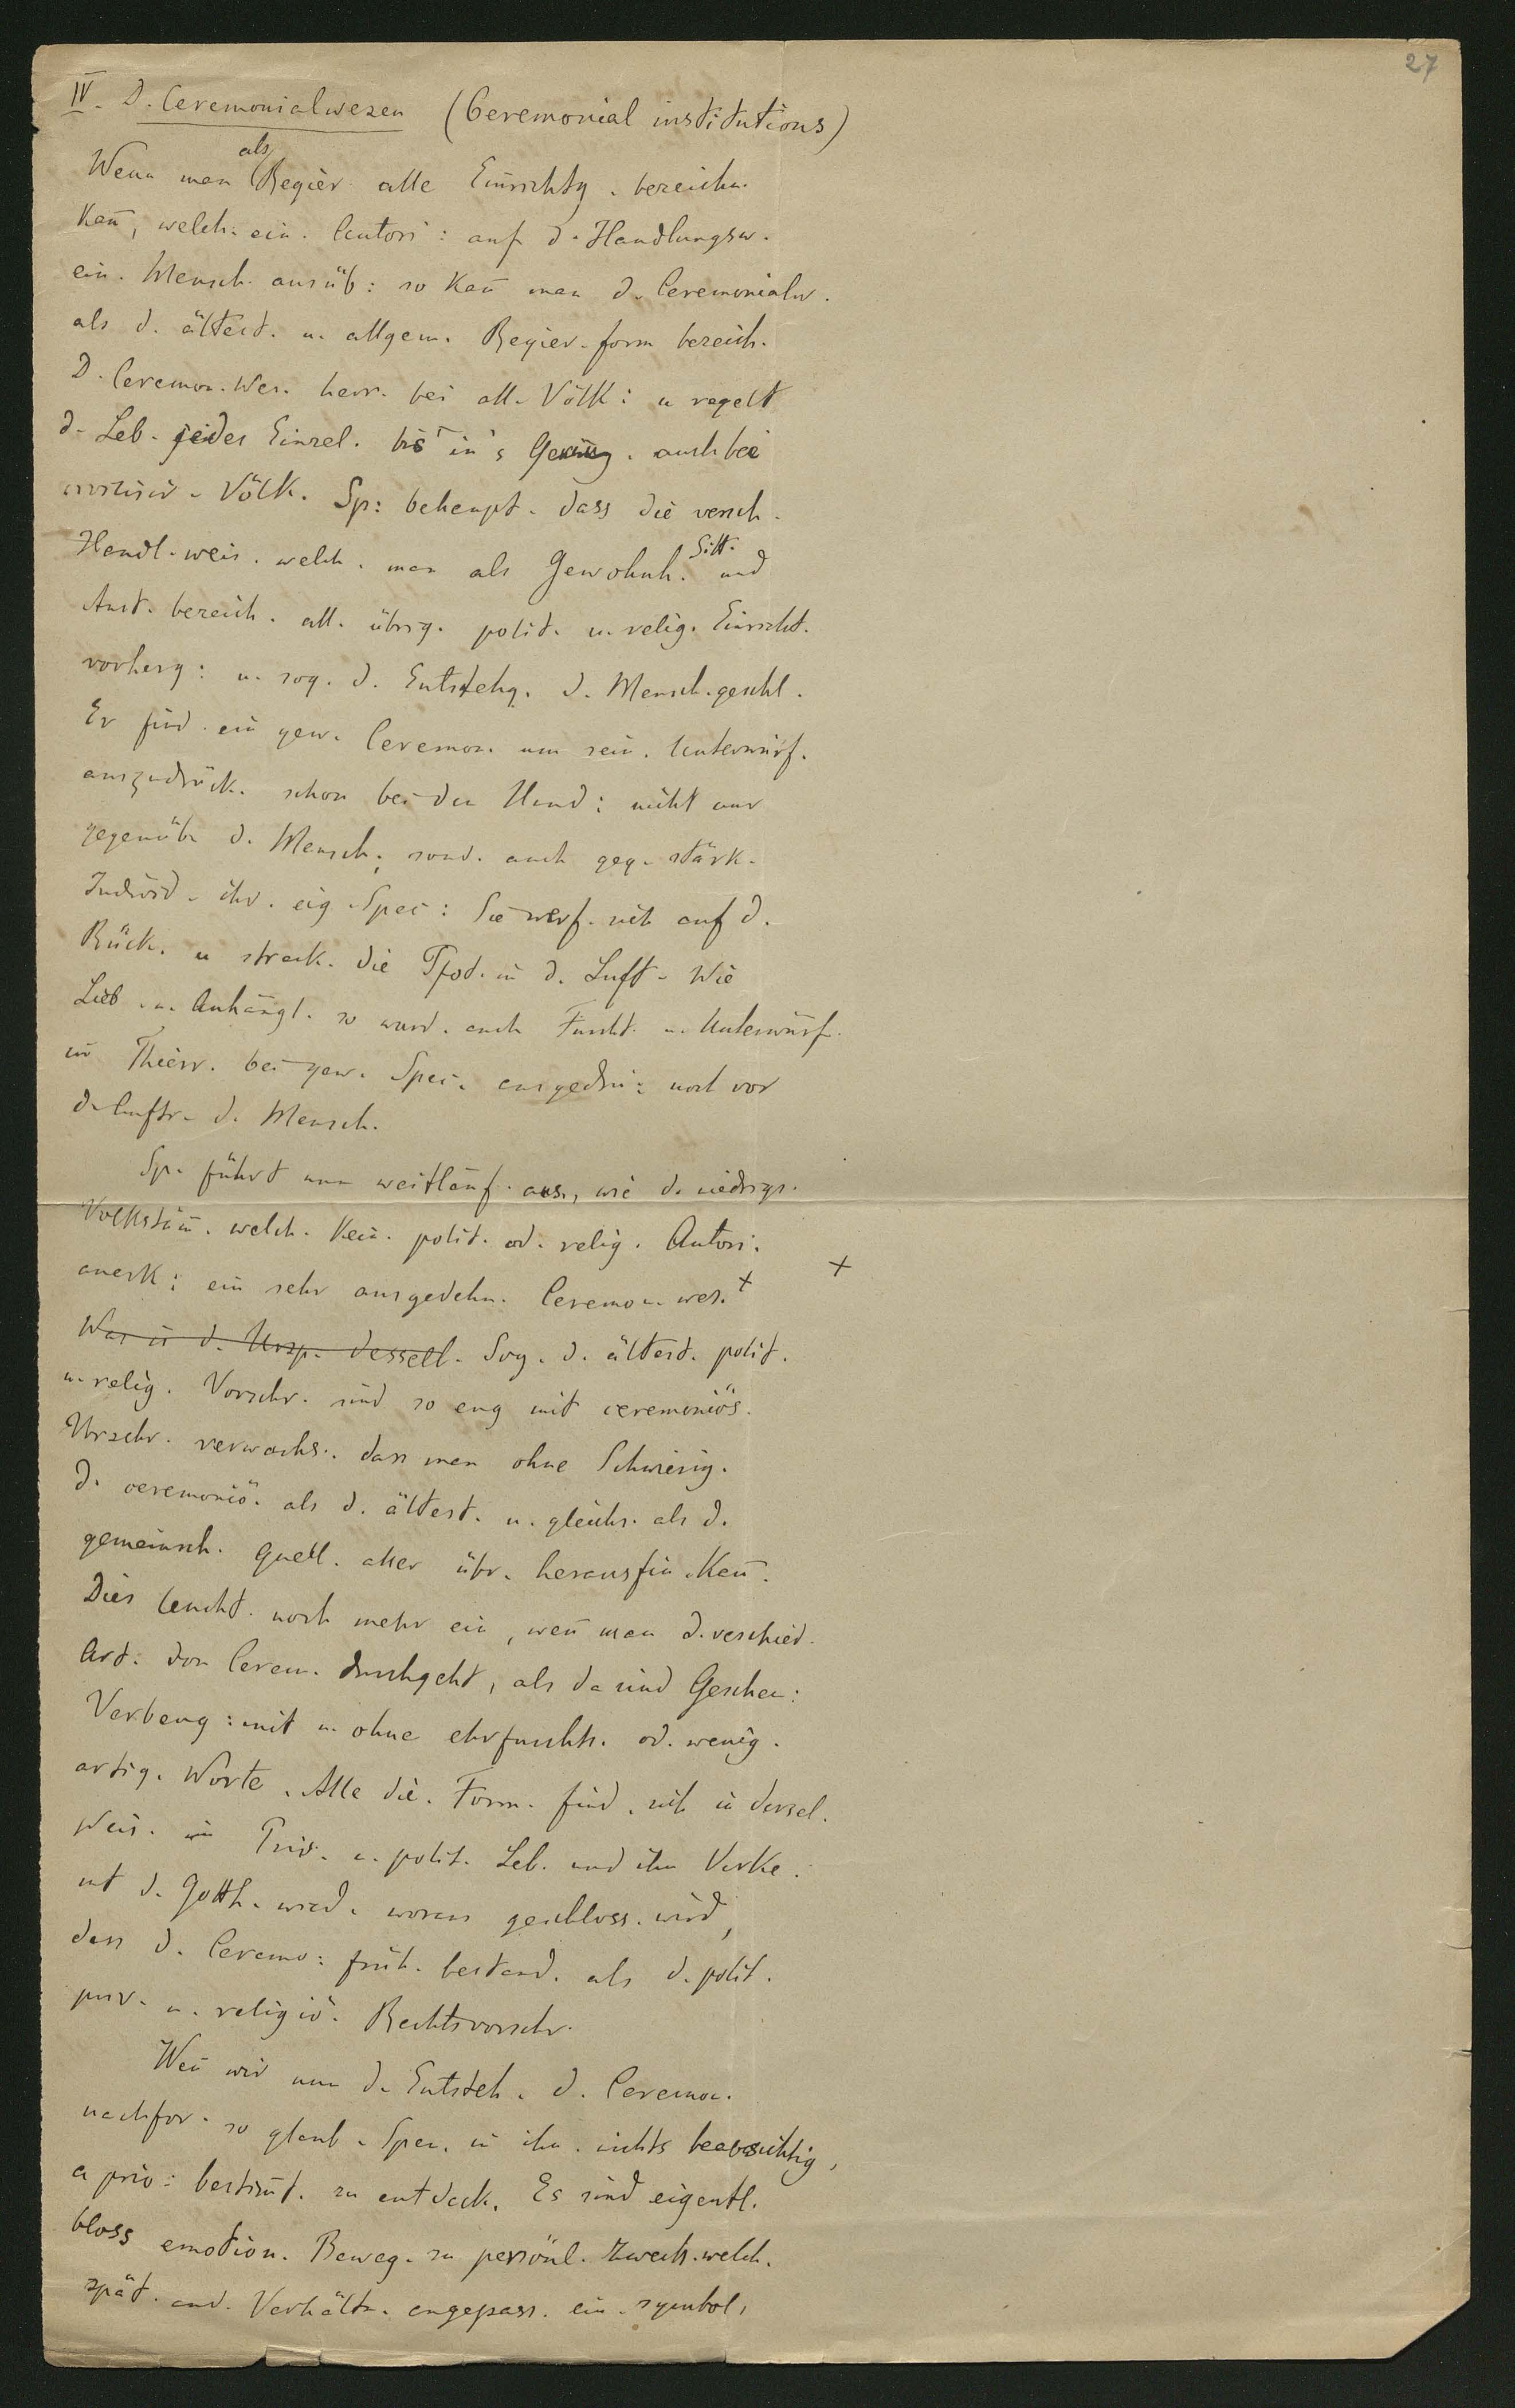 27
IV. D. Ceremonialwesen (Ceremonial institutions)
als
Wenn man Regier. alle Einrichtg. bezeichn.
kan̄, welch. ein. Autori: auf d. Handlungsw.
ein. Mensch. ausüb: so kan̄ man d. Ceremonialw.
als d. ältest. u. allgem. Regier.form bezeich.
D. Ceremon. Wes. herr. bei all. Völk: u regelt
d. Leb. jedes Einzel. bis in's auch bei
civilisir. Völk. Sp: behaupt. dass die versch.
Handl.weis. welch. man als Gewohnh. Sitt. und
Anst. bezeich. all. übrig. polit. u. relig. Einricht.
vorherg: u. sog. d. Entstehg. d. Mensch.geschl.
Er find. ein gew. Ceremon. um sein. Unterwürf.
auszudrück. schon bei den Hund: nicht nur
gegenüb. d. Mensch, sond. auch geg. stärk.
Individ. ihr. eig. Spec: Sie werf. sich auf d.
Rück. u streck. die Pfot. in d. Luft. Wie
Lieb. u. Anhängl. so wurd. auch Furcht u. Unterwürf.
im Thierr. bei gew. Spec. ausgedrü: noch vor
d. Auftr. d. Mensch.
Sp. führt nun weitläuf. aus, wie d. niedrigs.
Volkstäm̄. welch. kein. polit. od. relig. Autori.
anerk: ein sehr ausgedehn. Ceremon. wes. + +
Was is d. Ursp. dessell. Sog. d. ältest. polit.
u. relig. Vorschr. sind so eng mit ceremoniös.
verwachs. dass man ohne Schwierig.
d. ceremoniö. als d. ältest. u. gleichs. als d.
gemeinsch. Quell. aller übr. herausfin. kan̄.
Dies leucht. noch mehr ein, wen̄ man d. verschied.
Art. von Cerem. durchgeht, als da sind Geschen:
Verbeug: mit u. ohne ehrfurchts. od. wenig.
artig. Worte. Alle die. Form. find. sich in dersel.
Weis. im Priv. u. polit. Leb. und im Verke.
mt d. Gotth. wied. woraus geschloss. wird,
dass d. Ceremo: früh. bestand. als d. polit.
priv. u. religiö. Rechtsvorschr.
Wen̄ wir nun d. Entsteh. d. Ceremon.
nachfor. so glaub. Spen. in ihn. nichts beabsichtig,
a prio: bestim̄t. zu entdeck. Es sind eigentl.
bloss emotion. Beweg. zu persönl. Zweck. welch.
spät. and. Verhältn. angepass. ein. symbol,